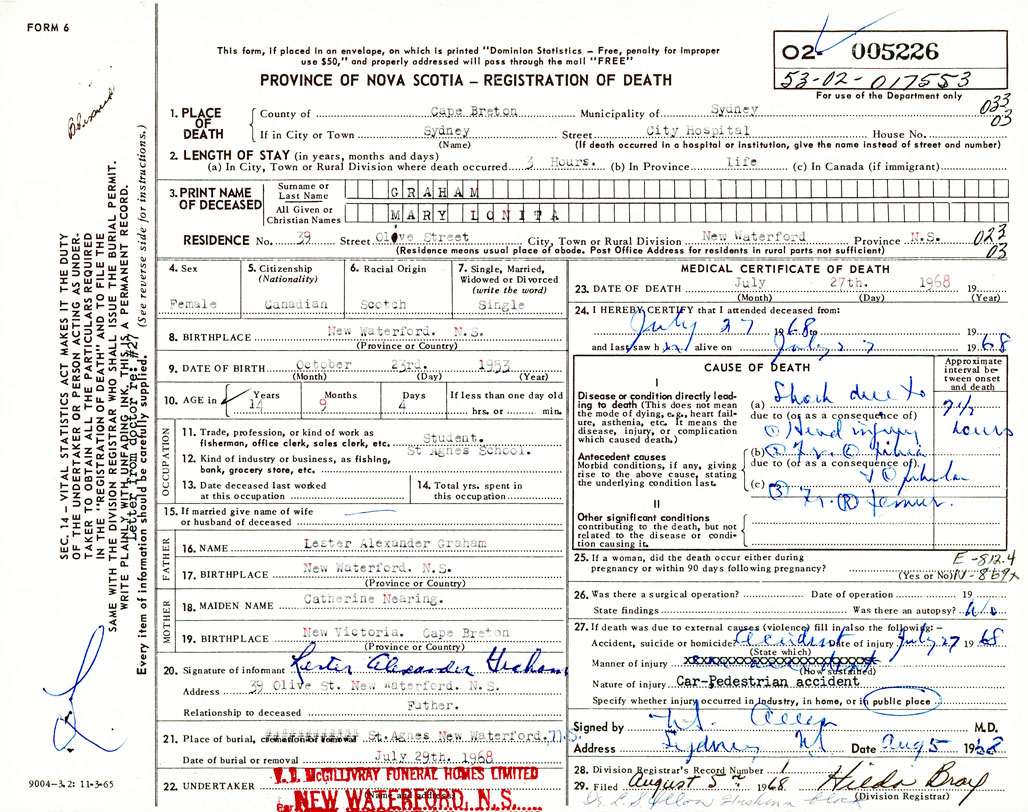 FORM 6
This form, if placed in an envelope, on which is printed "Dominion Statistics – Free, penalty for improper
use $50," and properly addressed will pass through the mail "FREE"
PROVINCE OF NOVA SCOTIA – REGISTRATION OF DEATH
O2- 005226
53-02-017553
For use of the Department only
033
03
1. PLACE OF DEATH
County of Cape Breton Municipality of Sydney
If in City or Town Sydney Street City Hospital House No.
(Name) (If death occurred in a hospital or institution, give the name instead of street and number)
2. LENGTH OF STAY (in years, months and days)
(a) In City, Town or Rural Division where death occurred 3 Hours. (b) In Province Life (c) In Canada (if immigrant)
3. PRINT NAME OF DECEASED
Surname or Last Name GRAHAM
All Given or Christian Names MARY LONITA
RESIDENCE No. 39 Street Olive Street City, Town or Rural Division New Waterford Province N.S. 023
(Residence means usual place of abode. Post Office Address for residents in rural parts not sufficient) 03
4. Sex
Female
5. Citizenship
(Nationality)
Canadian
6. Racial Origin
Scotch
7. Single, Married,
Widowed or Divorced
(write the word)
Single
8. BIRTHPLACE New Waterford. N.S.
(Province or Country)
9. DATE OF BIRTH October 23rd. 1953
(Month) (Day) (Year)
10. AGE in Years Months Days If less than one day old
14 9 4 hrs. or min.
OCCUPATION
11. Trade, profession, or kind of work as
fisherman, office clerk, sales clerk, etc. Student.
12. Kind of industry or business, as fishing,
bank, grocery store, etc. St Agnes School.
13. Date deceased last worked
at this occupation
14. Total yrs. spent in
this occupation
15. If married give name of wife
or husband of deceased
FATHER
16. NAME Lester Alexander Graham
17. BIRTHPLACE New Waterford. N.S.
(Province or Country)
MOTHER
18. MAIDEN NAME Catherine Nearing.
19. BIRTHPLACE New Victoria. Cape Breton
(Province or Country)
20. Signature of informant Lester Alexander Graham
Address 39 Olive St. New Waterford. N.S.
Relationship to deceased Father.
21. Place of burial, cremation or removal St. Agnes New Waterford. N.S.
Date of burial or removal July 29th. 1968
22. UNDERTAKER McGILLIVRAY FUNERAL HOMES LIMITED
(Name and address)
NEW WATERFORD, N.S.
MEDICAL CERTIFICATE OF DEATH
23. DATE OF DEATH July 27th. 1968 19
(Month) (Day) (Year)
24. I HEREBY CERTIFY that I attended deceased from:
July 27 1968 to 19
and last saw h alive on July 27 1968
CAUSE OF DEATH
Approximate interval between onset and death
I
Disease or condition directly leading to death (This does not
mean the mode of dying, e.g., heart failure, asthenia, etc. It means the
disease, injury, or complication
which caused death.)
(a) Shock due to 2½ hours
due to (or as a consequence of)
① Head injury
Antecedent causes
Morbid conditions, if any, giving
rise to the above cause, stating
the underlying condition last.
(b) ② Fr. tibia
due to (or as a consequence of)
(c) ③ Fr. Ⓡ femur.
II
Other significant conditions
contributing to the death, but not
related to the disease or condition
causing it.
25. If a woman, did the death occur either during
pregnancy or within 90 days following pregnancy?
(Yes or No)
E-812.4
N-869x
26. Was there a surgical operation? Date of operation 19
State findings Was there an autopsy? No
27. If death was due to external causes (violence) fill in also the following:–
Accident, suicide or homicide? Accident Date of injury July 27 1968
(State which)
Manner of injury XXXXXXXXXXXXXXXXXX
(How sustained)
Nature of injury Car-Pedestrian accident
Specify whether injury occurred in Industry, in home, or in public place
Signed by M.D.
Address Sydney Date Aug 5 1968
28. Division Registrar's Record Number 1
29. Filed August 5th 1968 Hilda Bray
(Division Registrar)
SEC. 14 – VITAL STATISTICS ACT MAKES IT THE DUTY
OF THE UNDERTAKER OR PERSON ACTING AS UNDERTAKER
TO OBTAIN ALL THE PARTICULARS REQUIRED
IN THE "REGISTRATION OF DEATH" AND TO FILE THE
SAME WITH THE DIVISION REGISTRAR WHO SHALL ISSUE THE BURIAL PERMIT.
WRITE PLAINLY WITH UNFADING INK. THIS IS A PERMANENT RECORD.
Letter from doctor re: #27
Every item of information should be carefully supplied. (See reverse side for instructions.)
9004-3.2: 11-3-65